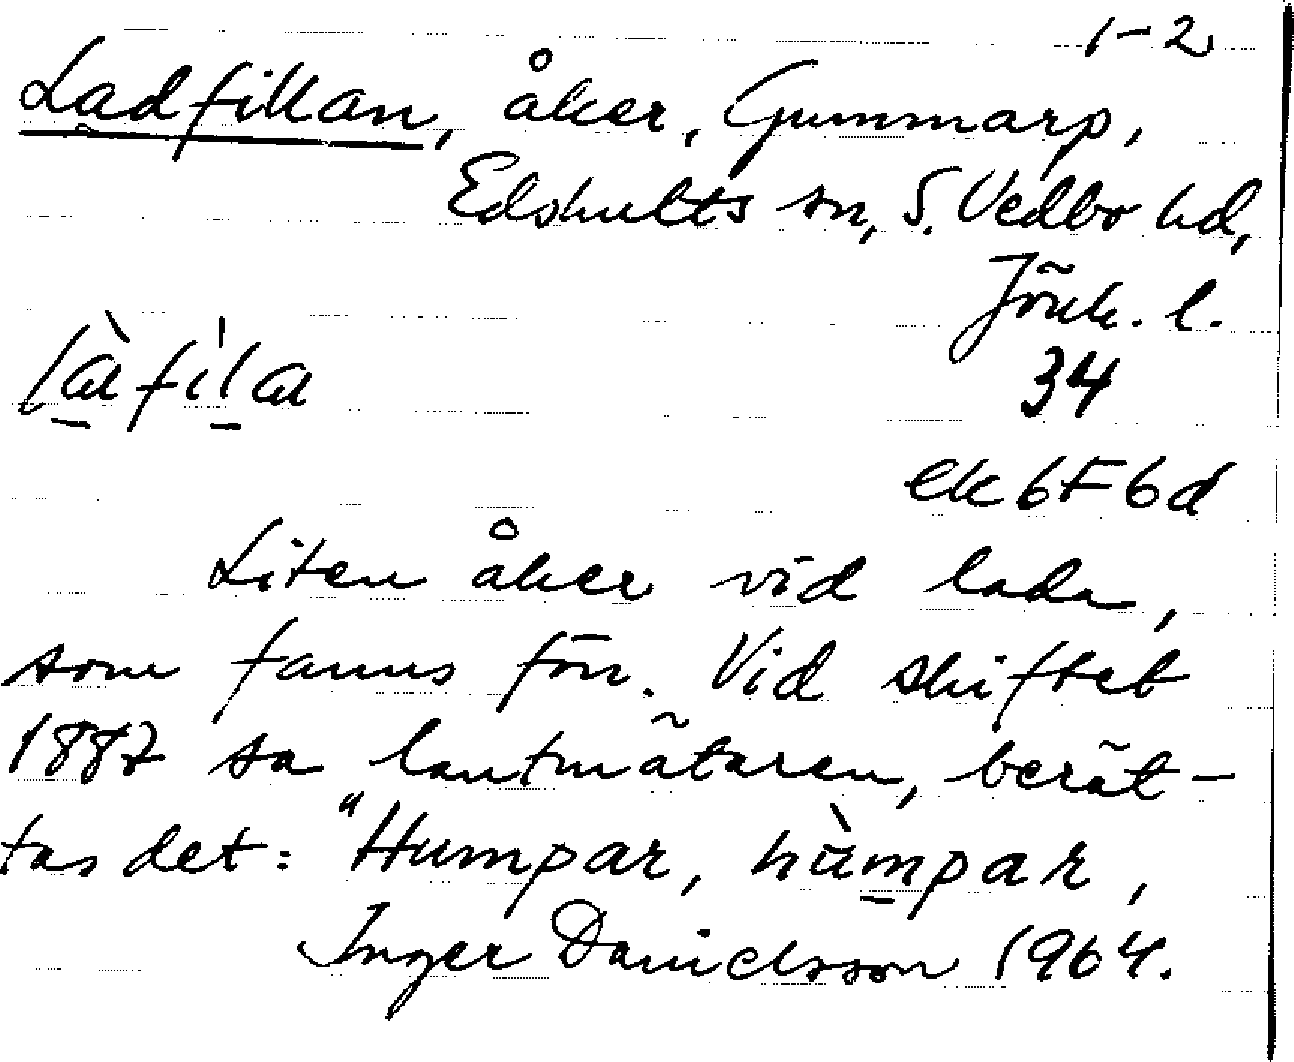 1-2
Ladfillan, åker, Gummarp,
Edshults sn, S. Vedbo hd,
Jönk. l.
34
ek 6F6d
Liten åker vid lada,
som fanns förr. Vid skiftet
1887 sa lantmätaren, berät-
tas det: "Humpar, hùmpar,
Inger Danielsson 1964.